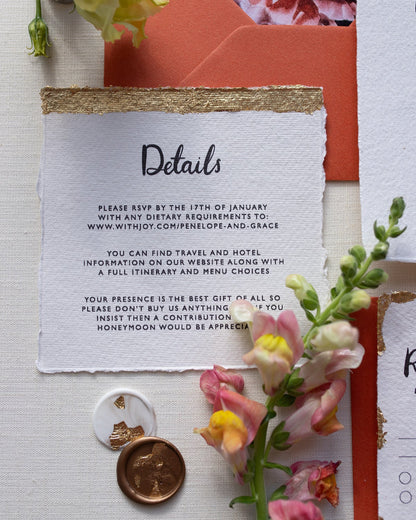 Details
PLEASE RSVP BY THE 17TH OF JANUARY
WITH ANY DIETARY REQUIREMENTS TO:
WWW.WITHJOY.COM/PENELOPE-AND-GRACE
YOU CAN FIND TRAVEL AND HOTEL
INFORMATION ON OUR WEBSITE ALONG WITH
A FULL ITINERARY AND MENU CHOICES
YOUR PRESENCE IS THE BEST GIFT OF ALL SO
PLEASE DON'T BUY US ANYTHING YOU
INSIST THEN A CONTRIBUTION
HONEYMOON WOULD BE APPRECIA
R